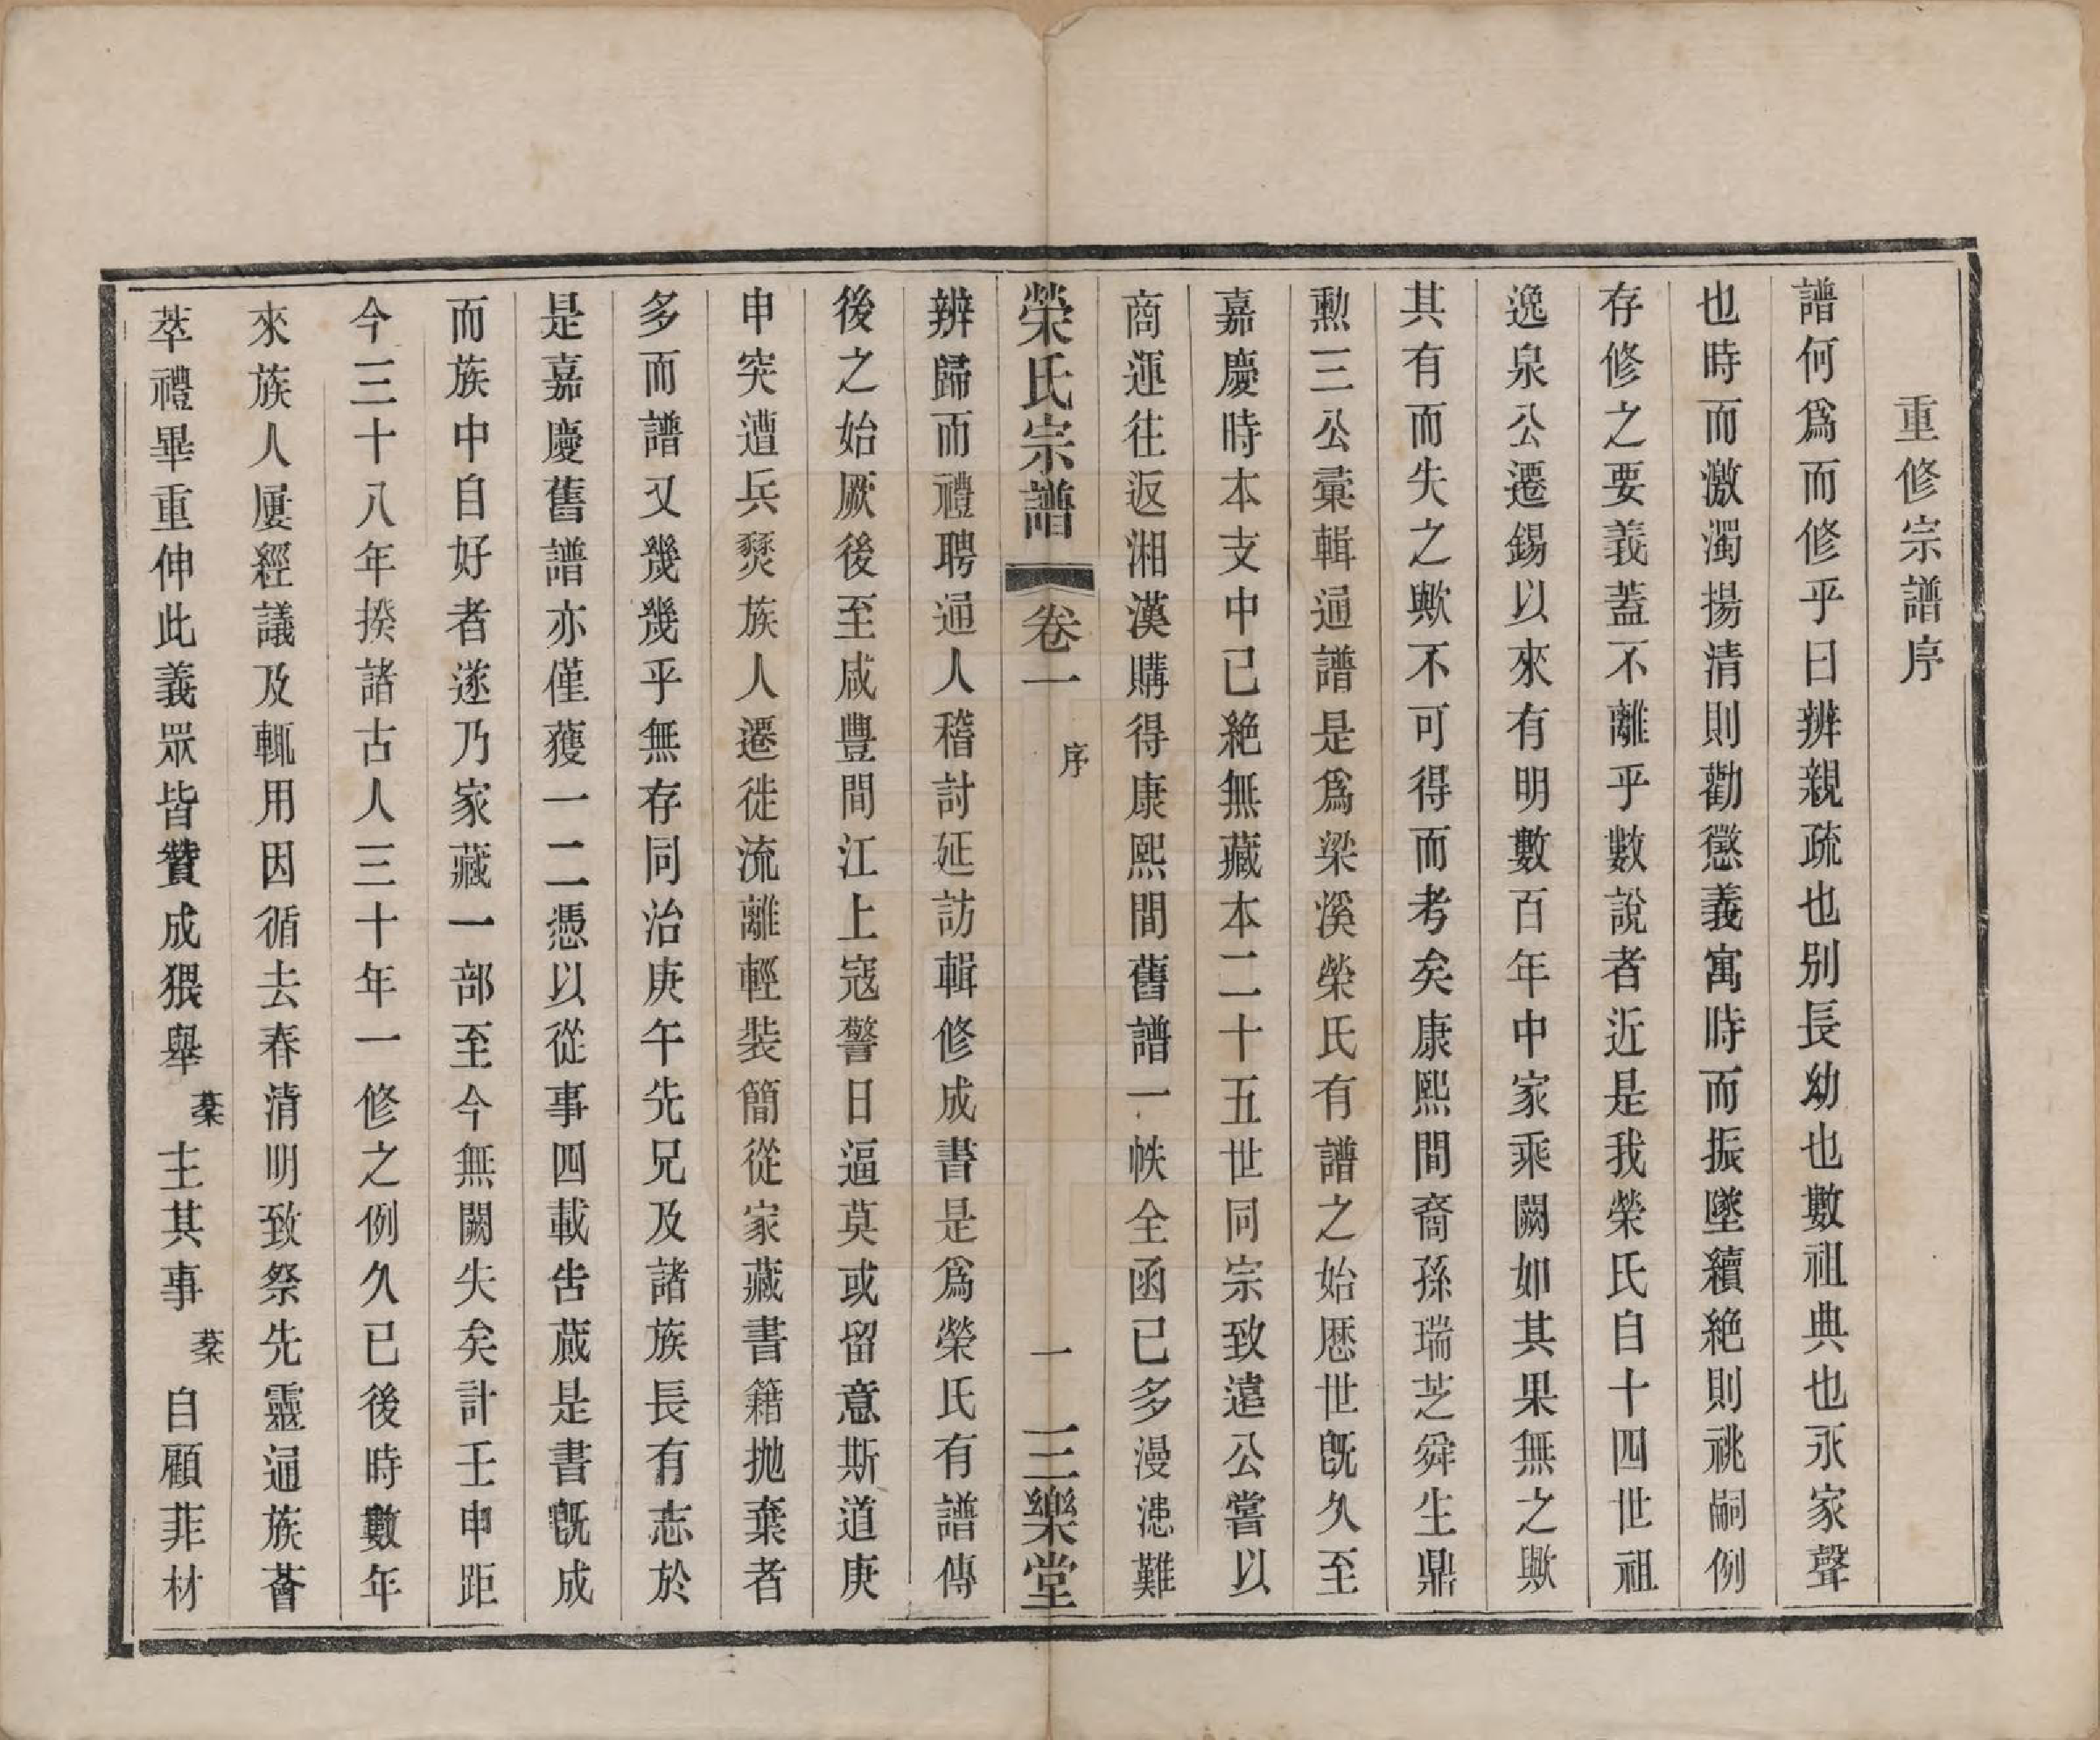 重修宗譜序
譜何爲而修乎曰辨親疏也别長幼也數祖典也永家聲
也時而激濁揚清則勸懲義寓時而振墜續絶則祧嗣例
存修之要義蓋不離乎數說者近是我榮氏自十四世祖
逸泉公遷錫以來有明數百年中家乘闕如其果無之歟
其有而失之歟不可得而考矣康熙間裔孫瑞芝舜生鼎
勲三公彙輯通譜是爲梁溪榮氏有譜之始歷世旣久至
嘉慶時本支中已絶無藏本二十五世同宗致遠公嘗以
商運往返湘漢購得康熙間舊譜一帙全函已多漫漶難
榮氏宗譜 卷一 序 一 三樂堂
辨歸而禮聘通人稽討延訪輯修成書是爲榮氏有譜傳
後之始厥後至咸豐間江上寇警日逼莫或留意斯道庚
申突遭兵燹族人遷徙流離輕裝簡從家藏書籍拋棄者
多而譜又幾幾乎無存同治庚午先兄及諸族長有志於
是嘉慶舊譜亦僅獲一二憑以從事四載吿蕆是書旣成
而族中自好者遂乃家藏一部至今無闕失矣計壬申距
今三十八年揆諸古人三十年一修之例久已後時數年
來族人屢經議及輒用因循去春清明致祭先靈通族薈
萃禮畢重伸此義眾皆贊成猥舉菜主其事菜自顧菲材